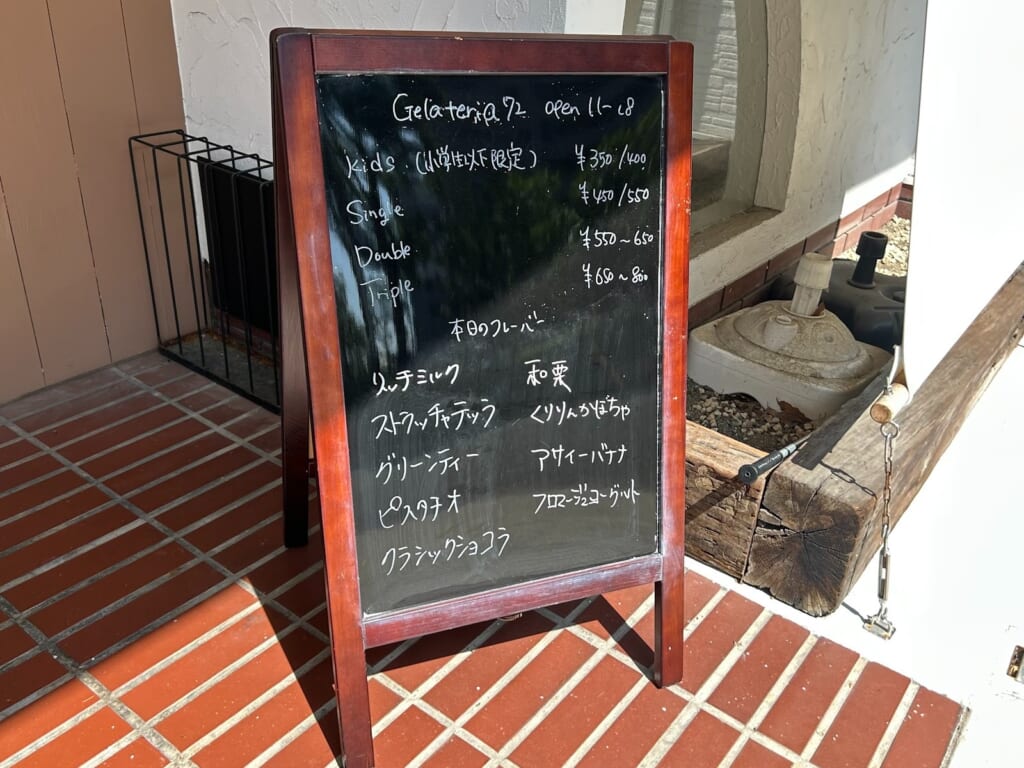 Gelateria 72 open 11-18
Kids (小学生以下限定) ¥350/400
Single ¥450/550
Double ¥550~650
Triple ¥650~800
本日のフレーバー
リッチミルク 和栗
ストラッチャテッラ くりりんかぼちゃ
グリーンティー アサイーバナナ
ピスタチオ フロマージュヨーグルト
クラシックショコラ